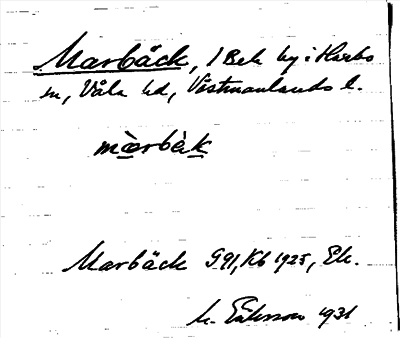 Marbäck, 1 Bek by i Harbo
sn, Våla hd, Västmanlands l.
màrbàk
Marbäck G91, Kb 1925, Ek.
M. Eriksson 1931